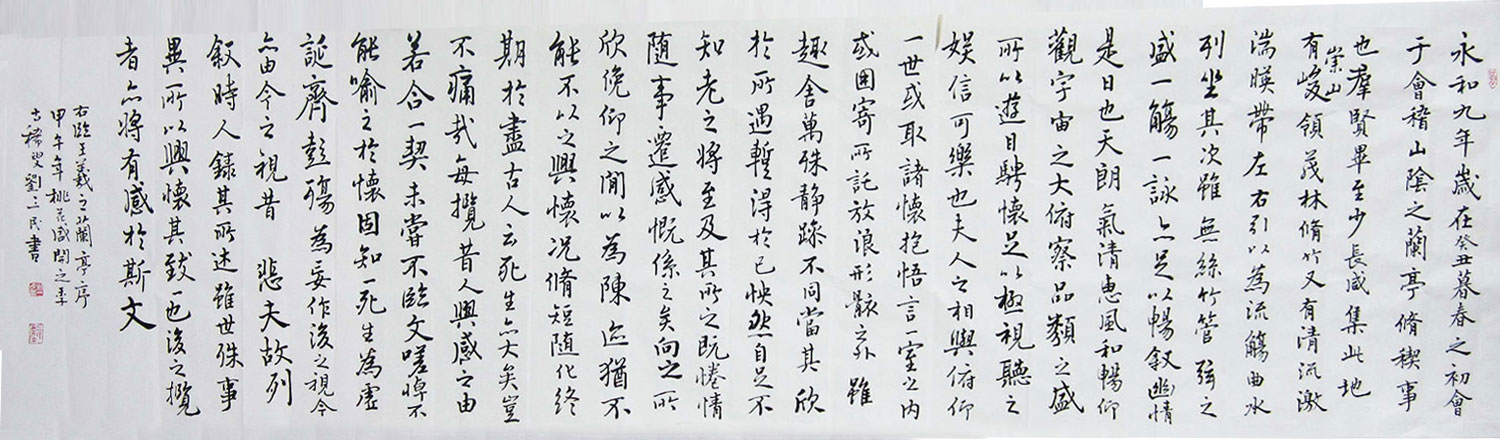 永和九年歲在癸丑暮春之初會
于會稽山陰之蘭亭脩稧事
也羣賢畢至少長咸集此地
有崇山峻領茂林脩竹又有清流激
湍暎帶左右引以為流觴曲水
列坐其次雖無絲竹管弦之
盛一觴一詠亦足以暢叙幽情
是日也天朗氣清惠風和暢仰
觀宇宙之大俯察品類之盛
所以遊目騁懷足以極視聽之
娛信可樂也夫人之相與俯仰
一世或取諸懷抱悟言一室之內
或因寄所託放浪形骸之外雖
趣舍萬殊静躁不同當其欣
於所遇暫得於己怏然自足不
知老之將至及其所之既惓情
随事遷感慨係之矣向之所
欣俛仰之間以為陳迹猶不
能不以之興懷況脩短随化終
期於盡古人云死生亦大矣豈
不痛哉每攬昔人興感之由
若合一契未嘗不臨文嗟悼不
能喻之於懷固知一死生為虛
誕齊彭殤為妄作後之視今
亦由今之視昔 悲夫故列
叙時人録其所述雖世殊事
異所以興懷其致一也後之攬
者亦將有感於斯文
右臨王羲之蘭亭序
甲午年桃花盛開之季
古稀叟劉三民書